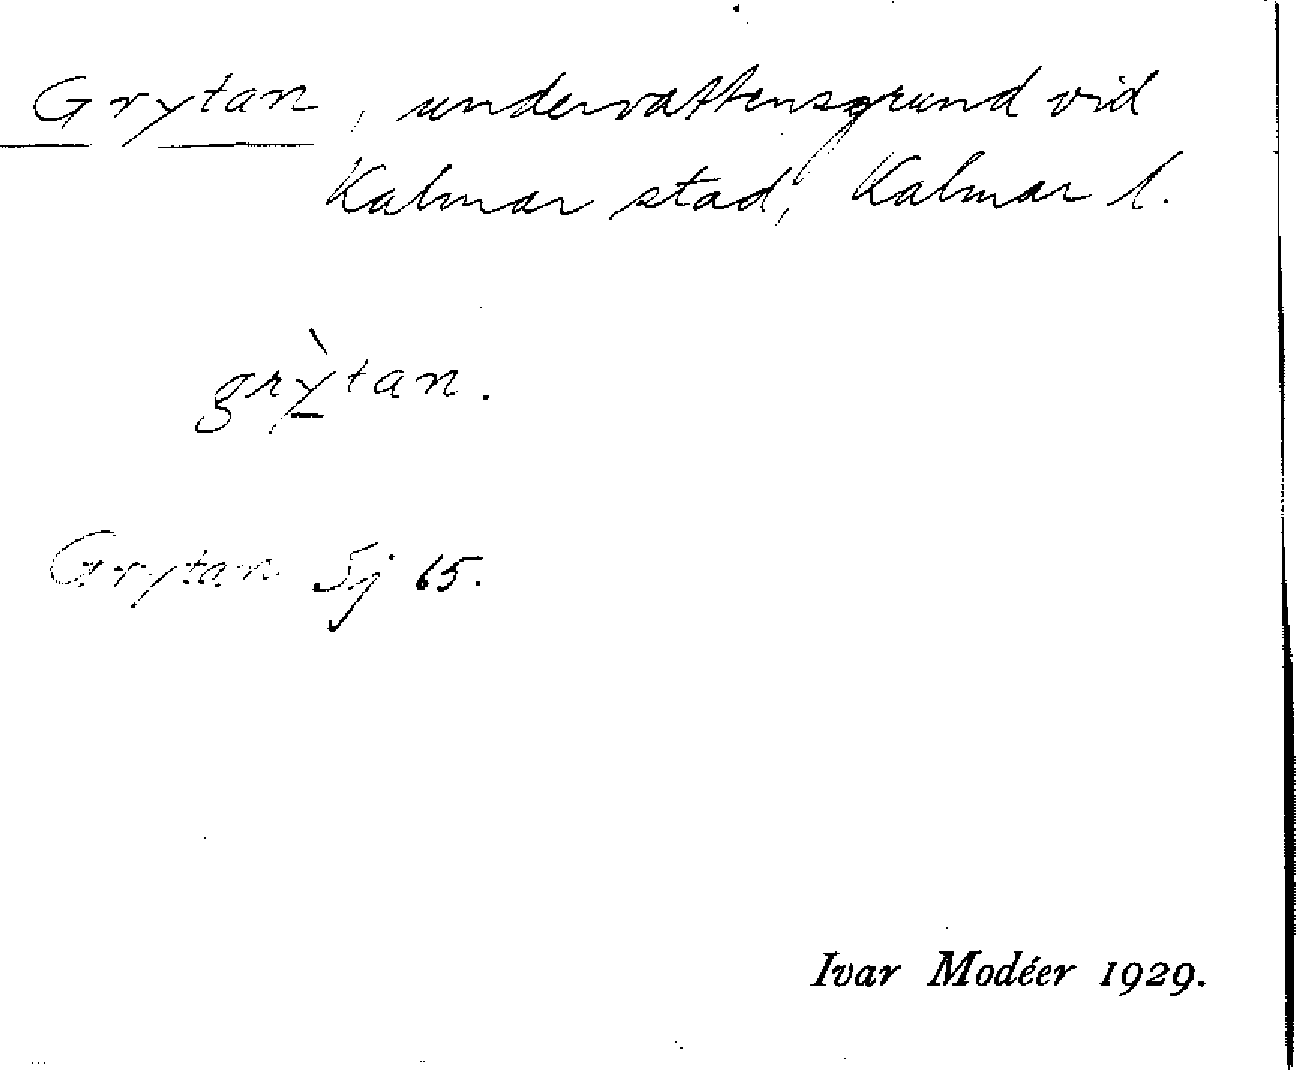 Grytan, undervattensgrund vid
Kalmar stad, Kalmar l.
grỳ̲tan.
Grytan Sj 65.
Ivar Modéer 1929.